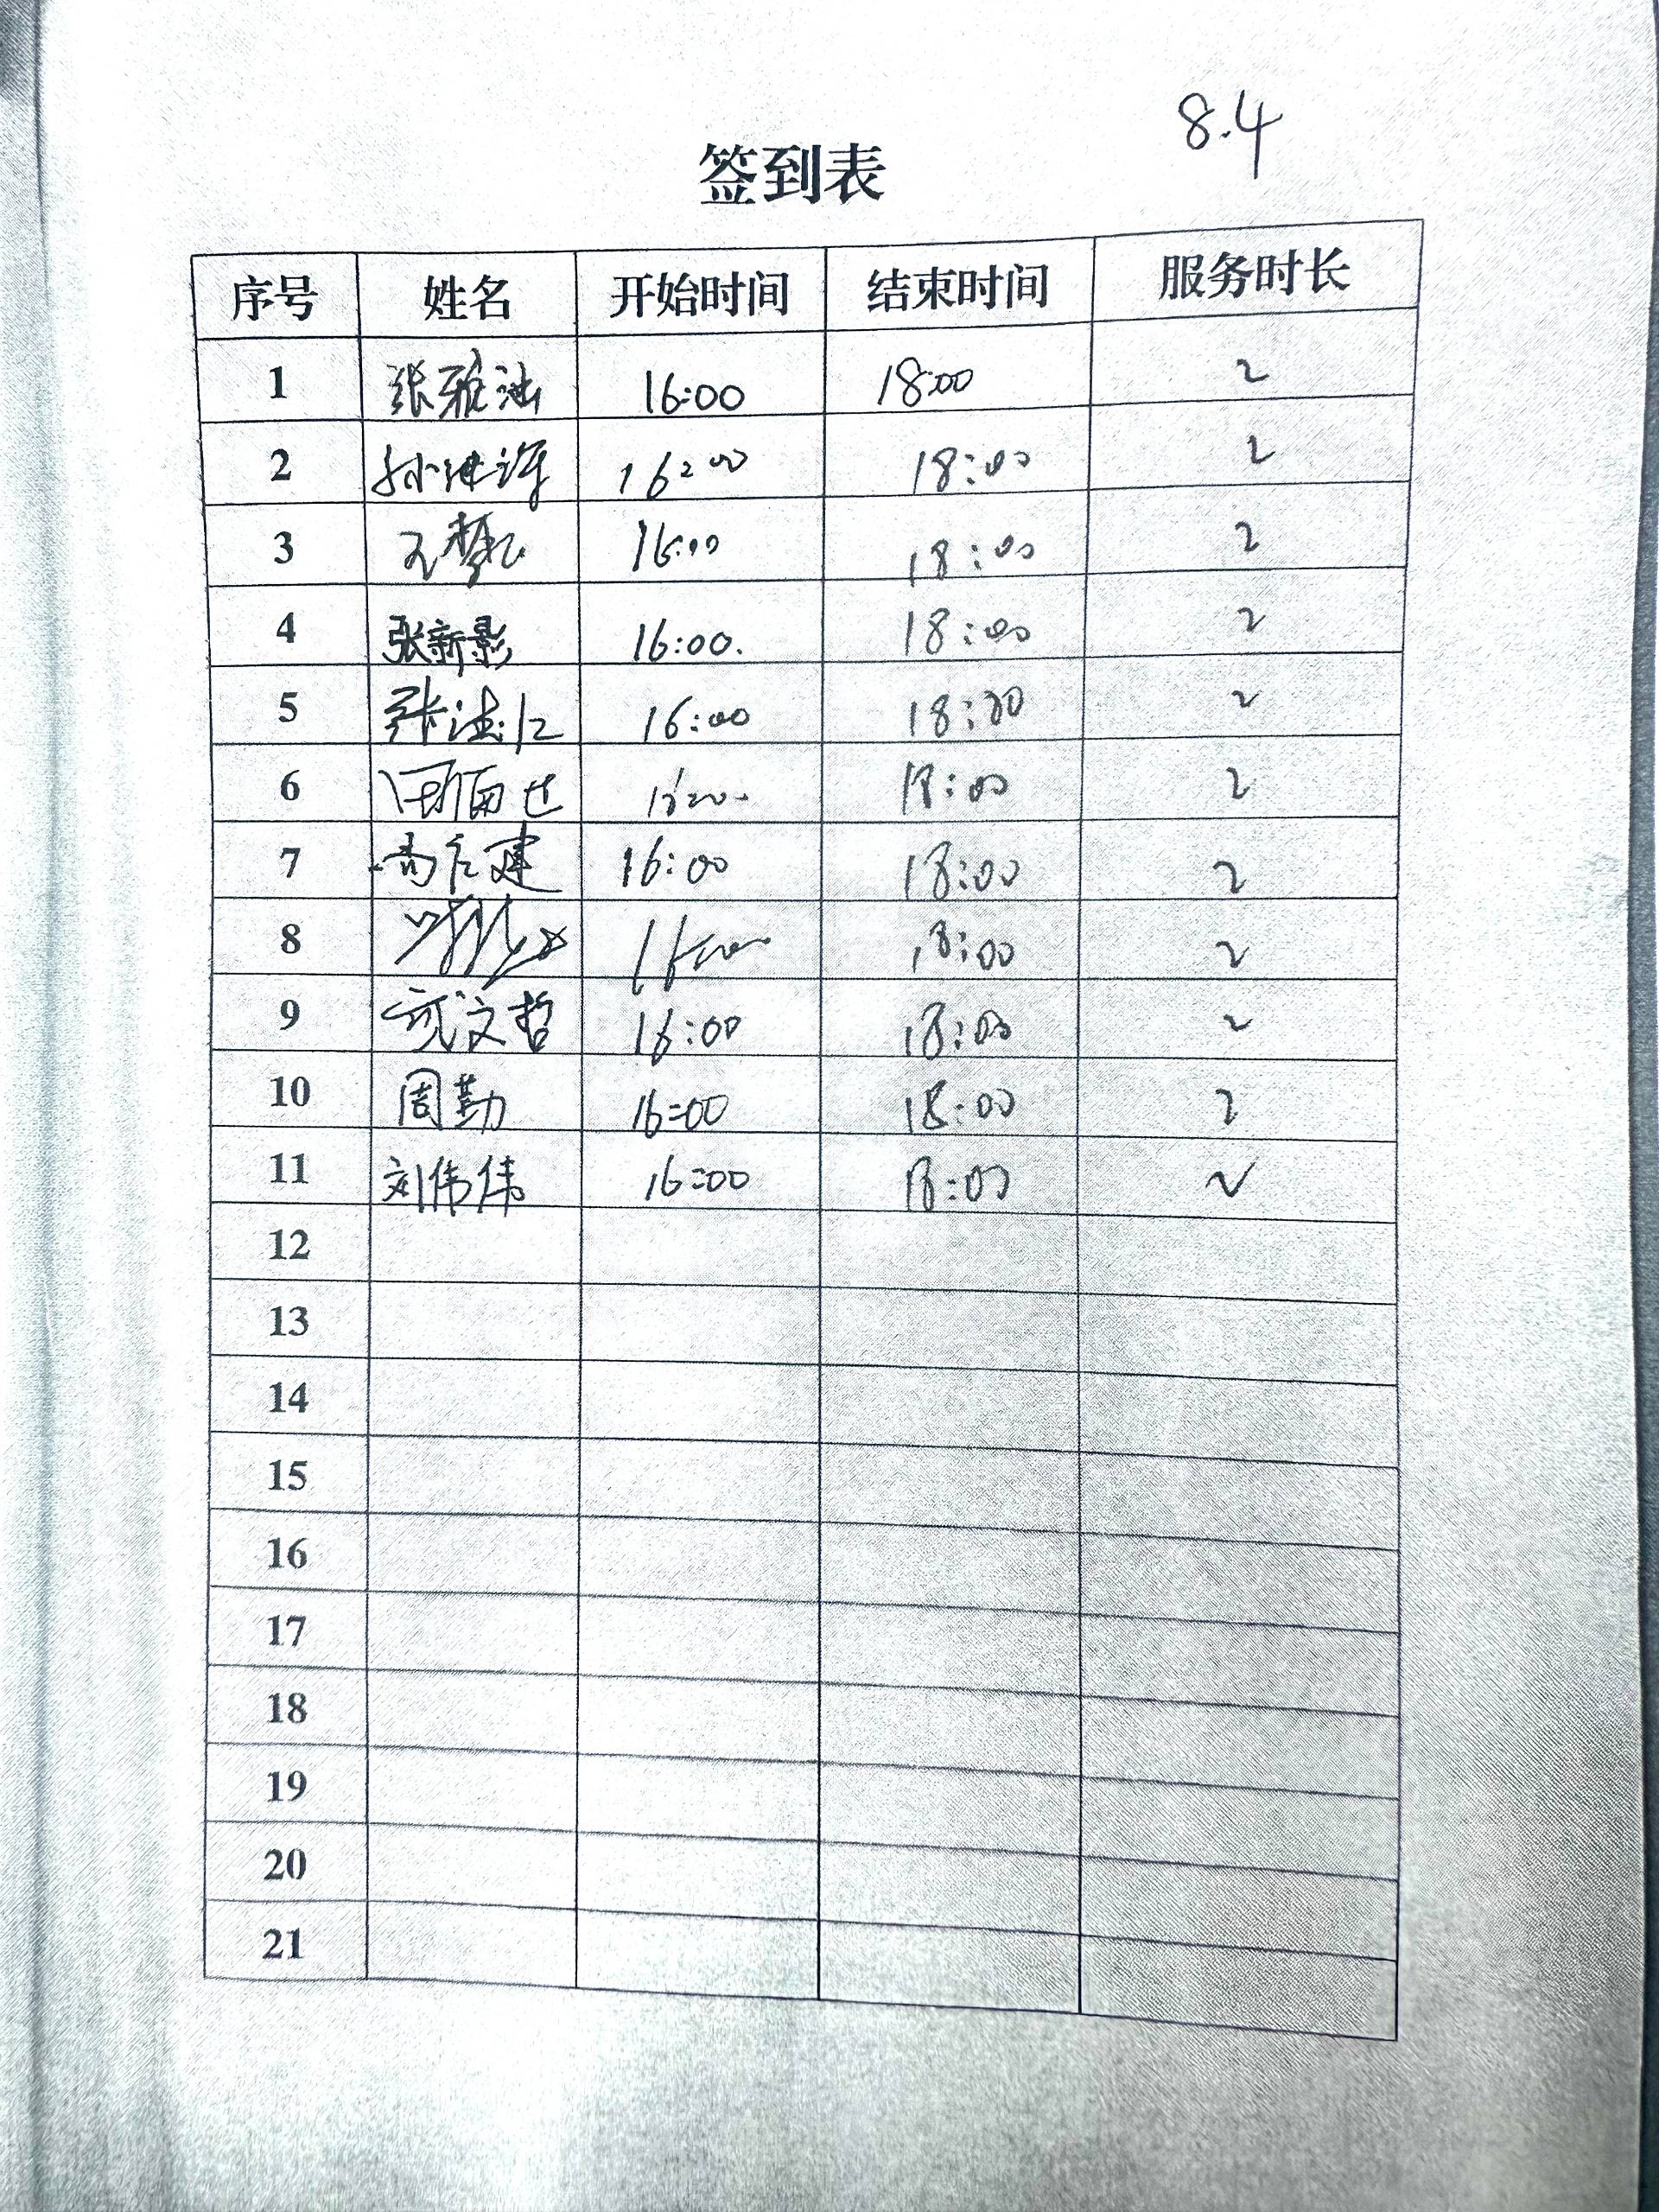 8.4
签到表
序号 姓名 开始时间 结束时间 服务时长
1 张雅 16:00 18:00 2
2 孙 16:00 18:00 2
3 王梦 16:00 18:00 2
4 张新影 16:00. 18:00 2
5 张 16:00 18:00 2
6 18:00 2
7 建 16:00 18:00 2
8 16:00 18:00 2
9 文哲 16:00 18:00 2
10 周勤 16:00 18:00 2
11 刘伟伟 16:00 18:00 2
12
13
14
15
16
17
18
19
20
21